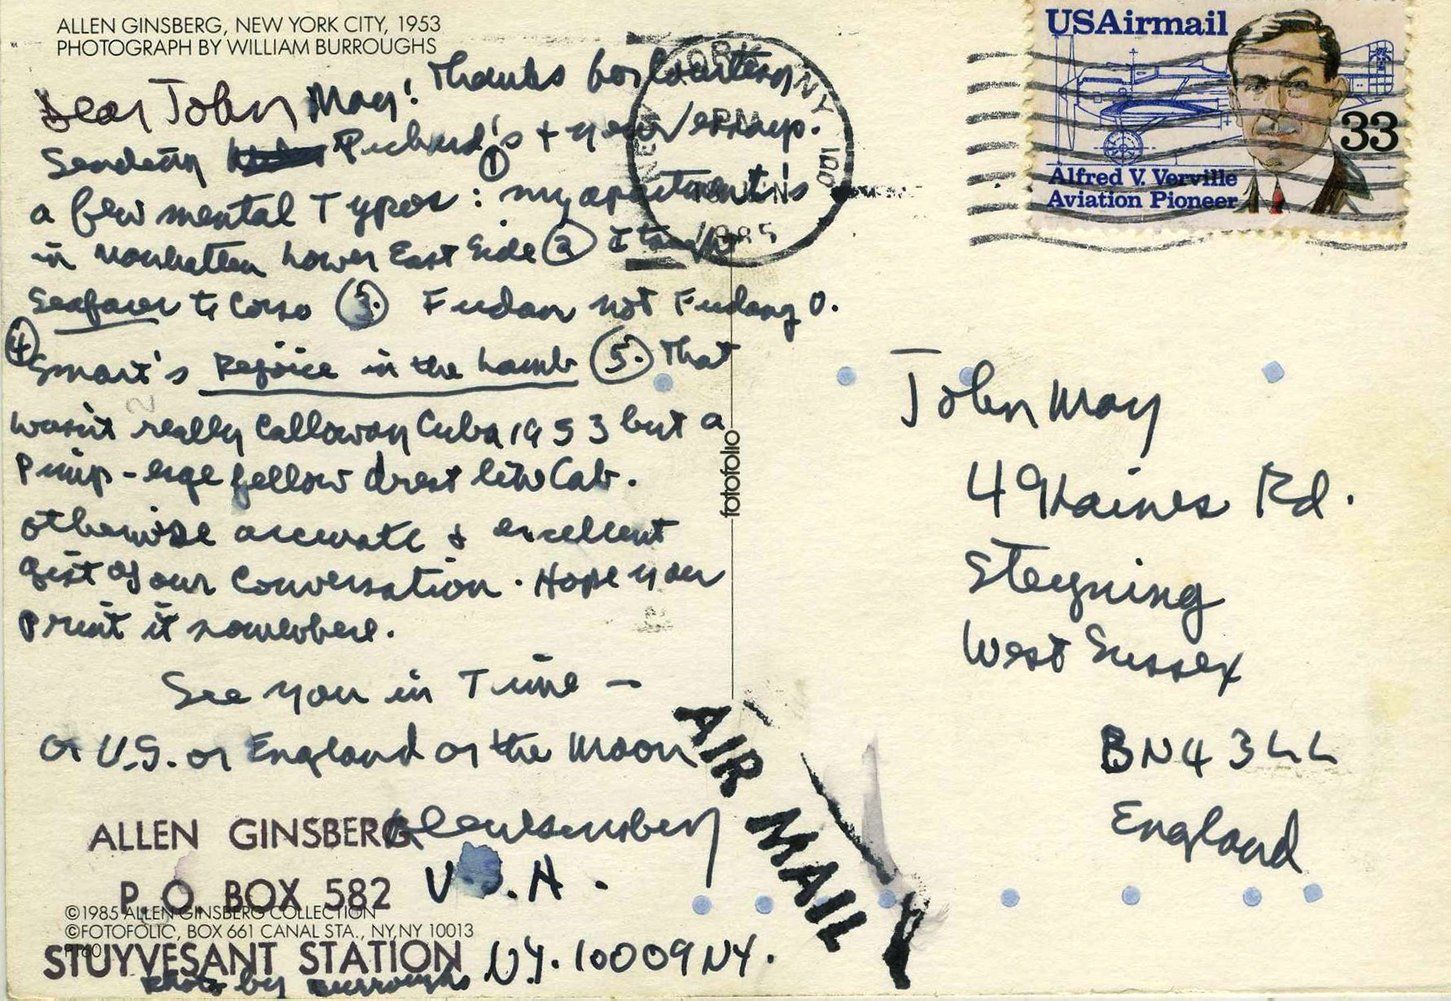 ALLEN GINSBERG, NEW YORK CITY, 1953
PHOTOGRAPH BY WILLIAM BURROUGHS
Dear John May! Thanks for courtesy
Sending Richard's + your essays.
a few mental Typos: ① my apartment's
in Manhattan Lower East Side ② I
Seafarer to Corso ③. Fudan not Fudang U.
④ Smart's Rejoice in the Lamb ⑤. That
wasn't really Calloway Cuba 1953 but a
Pimp-esque fellow drest like Cab.
otherwise accurate & excellent
gist of our Conversation. Hope you
print it somewhere.
See you in Time –
or U.S. or England or the Moon
Allen Ginsberg
ALLEN GINSBERG
P. O. BOX 582 U.S.A.
©1985 ALLEN GINSBERG COLLECTION
©FOTOFOLIO, BOX 661 CANAL STA., NY, NY 10013
STUYVESANT STATION N.Y. 10009 NY.
photo by Burroughs
fotofolio
NEW YORK NY 100
1985
USAirmail
33
Alfred V. Verville
Aviation Pioneer
John May
49 Haines Rd.
Steyning
West Sussex
BN4 3LL
England
AIR MAIL